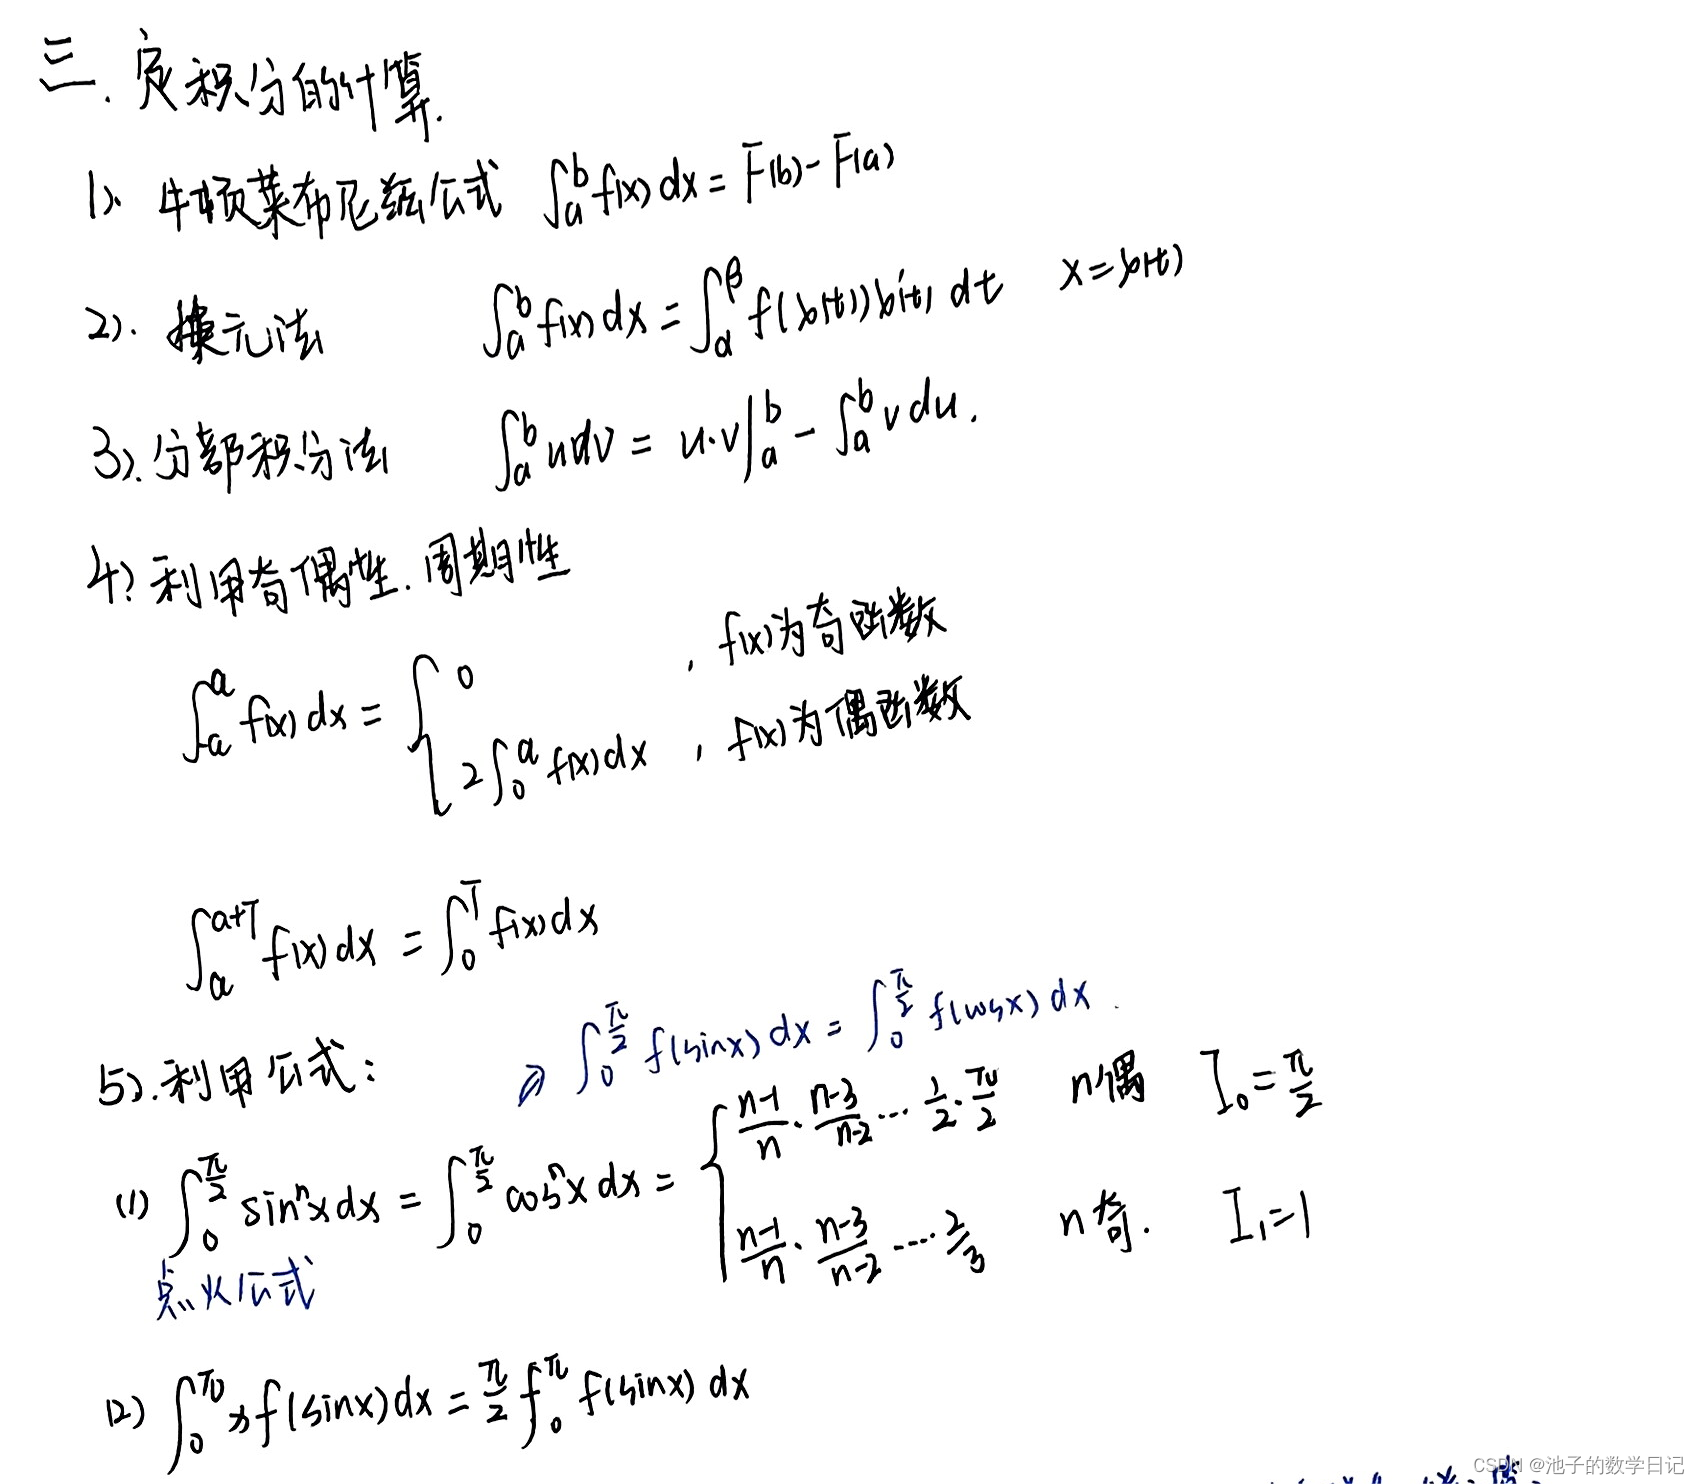 三. 定积分的计算.
1). 牛顿莱布尼兹公式 ∫_a^b f(x) dx = F(b) - F(a)
2). 换元法 ∫_a^b f(x) dx = ∫_α^β f(φ(t)) φ'(t) dt x = φ(t)
3). 分部积分法 ∫_a^b u dv = u·v|_a^b - ∫_a^b v du.
4). 利用奇偶性. 周期性
∫_{-a}^a f(x) dx = { 0 , f(x)为奇函数
2∫_0^a f(x) dx , f(x)为偶函数
∫_a^{a+T} f(x) dx = ∫_0^T f(x) dx
5). 利用公式: ⇒ ∫_0^{π/2} f(sinx) dx = ∫_0^{π/2} f(cosx) dx.
(1) ∫_0^{π/2} sin^n x dx = ∫_0^{π/2} cos^n x dx = { (n-1)/n · (n-3)/(n-2) ··· 1/2 · π/2 n偶 I_0 = π/2
(n-1)/n · (n-3)/(n-2) ···· 2/3 n奇. I_1 = 1
点火公式
(2) ∫_0^π x f(sinx) dx = π/2 ∫_0^π f(sinx) dx
CSDN @池子的数学日记